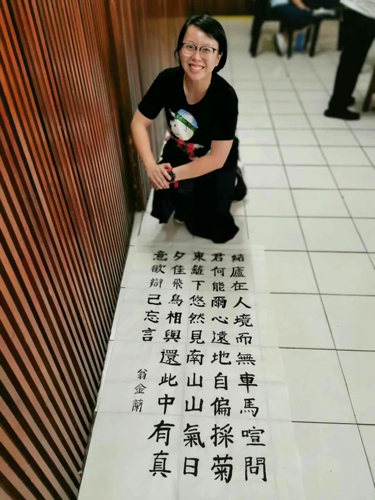 結廬在人境而無車馬喧問
君何能爾心遠地自偏採菊
東籬下悠然見南山山氣日
夕佳飛鳥相與還此中有真
意欲辯已忘言
翁金蘭